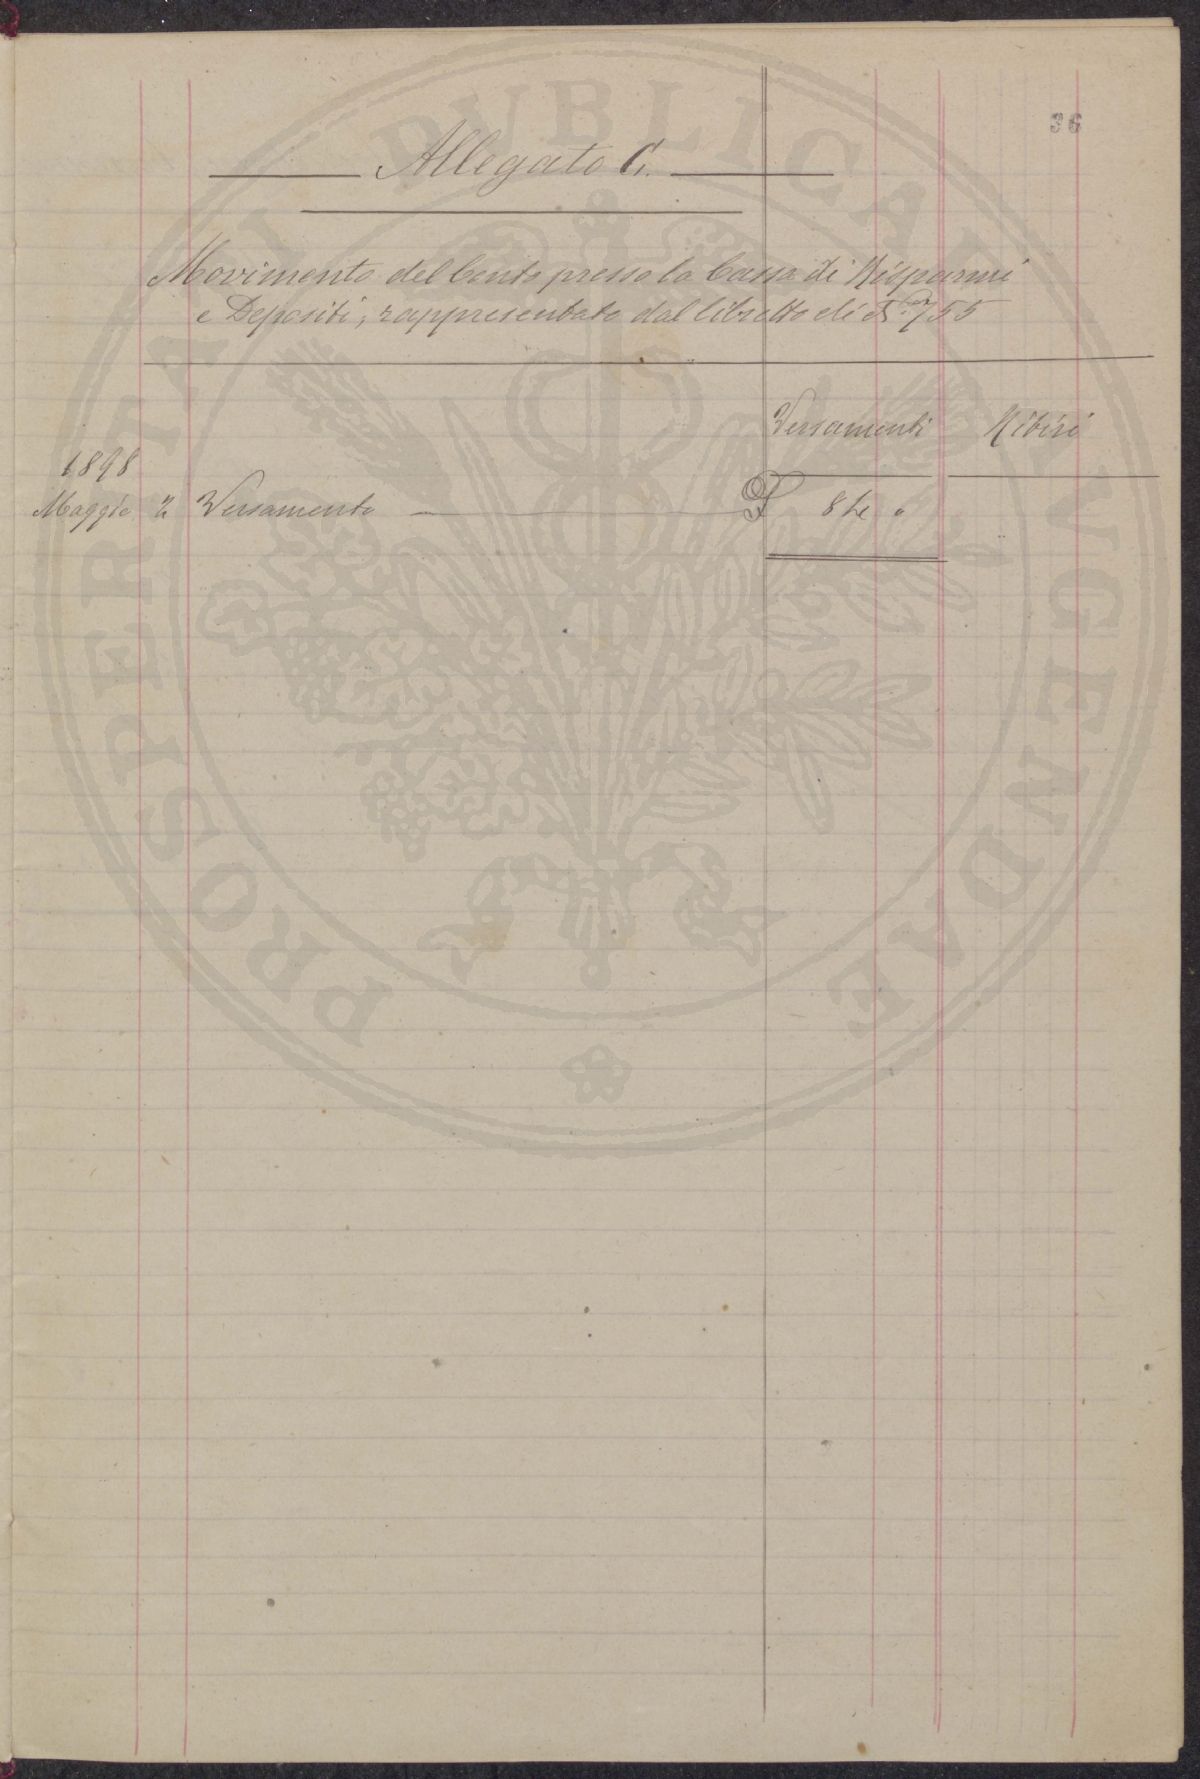 36
Allegato C.
Movimento del Conto presso la Cassa di Risparmi
e Depositi, rappresentato dal libretto di N.º 755
Versamenti Ritiri
1898
Maggio 2 Versamento
PROSPERITATI PUBLICAE AVGENDAE